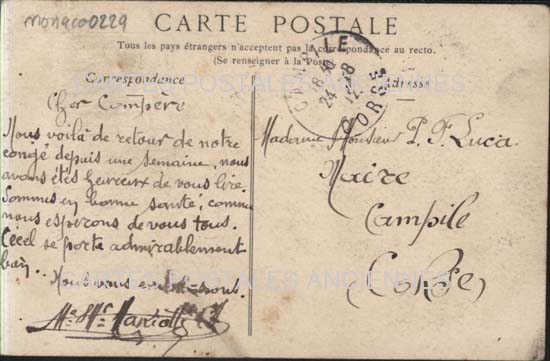 monaco0229
CARTE POSTALE
Tous les pays étrangers n'acceptent pas la correspondance au recto.
(Se renseigner à la Poste)
Correspondance
Adresse
CAMPILE
18 40
24
12
CORSE
Cher Compere
Nous voilà de retour de notre
congé depuis une semaine, nous
avons étés heureux de vous lire.
Sommes en bonne santé, comme
nous esperons de vous tous.
Cecil se porte admirablement
bain...
Nous vous
Madame Monsieur P. F. Luca
Maire
Campile
Corse
CARTES POSTALES ANCIENNES
CARTES POSTALES ANCIENNES